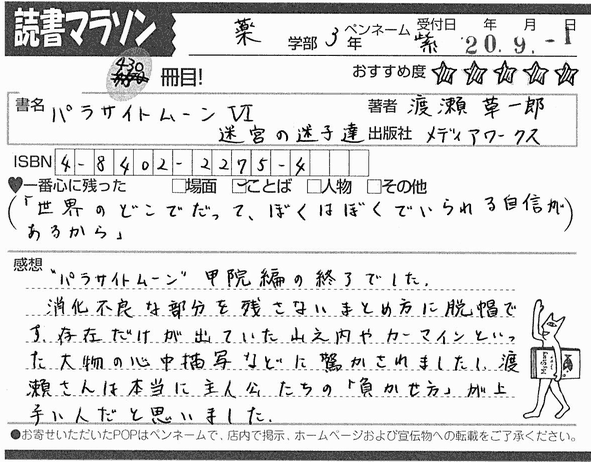 読書マラソン
薬 学部 3 年 ペンネーム 紫 受付日 年 月 日
'20.9.-1
430 冊目! おすすめ度 ☆☆☆☆☆
書名 パラサイトムーン Ⅵ 著者 渡瀬草一郎
迷宮の迷子達 出版社 メディアワークス
ISBN 4-8402-2275-4
♥一番心に残った □場面 ☑ことば □人物 □その他
(「世界のどこでだって、ぼくはぼくでいられる自信が
あるから」)
感想 "パラサイトムーン" 甲院編の終了でした。
消化不良な部分を残さないまとめ方に脱帽で
す。存在だけが出ていた山之内やカーマインといっ
た大物の心中描写などに驚かされましたし、渡
瀬さんは本当に主人公たちの「負かせ方」が上
手い人だと思いました。
●お寄せいただいたPOPはペンネームで、店内で掲示、ホームページおよび宣伝物への転載をご了承ください。